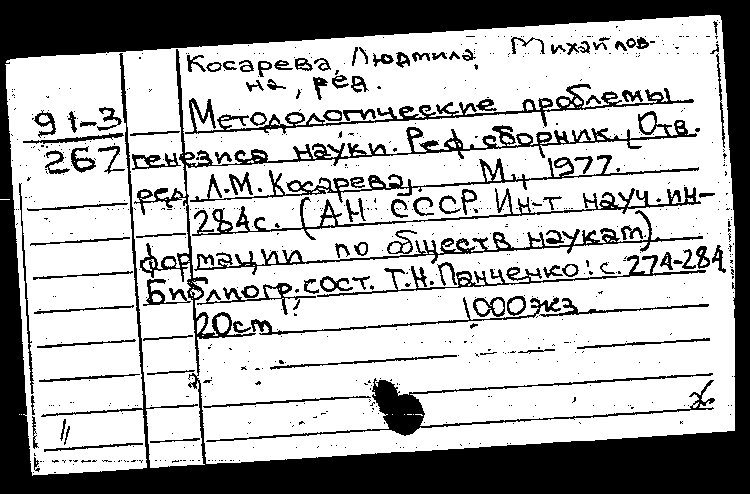 Косарева, Людмила Михайлов-
на, ред.
91-3
267
Методологические проблемы
генезиса науки. Реф. сборник. [Отв.
ред. Л.М. Косарева]. М., 1977.
284с. (АН СССР. Ин-т науч. ин-
формации по обществ наукам).
Библиогр. сост. Т.Н. Панченко: с. 274-284
20cm 1000экз.